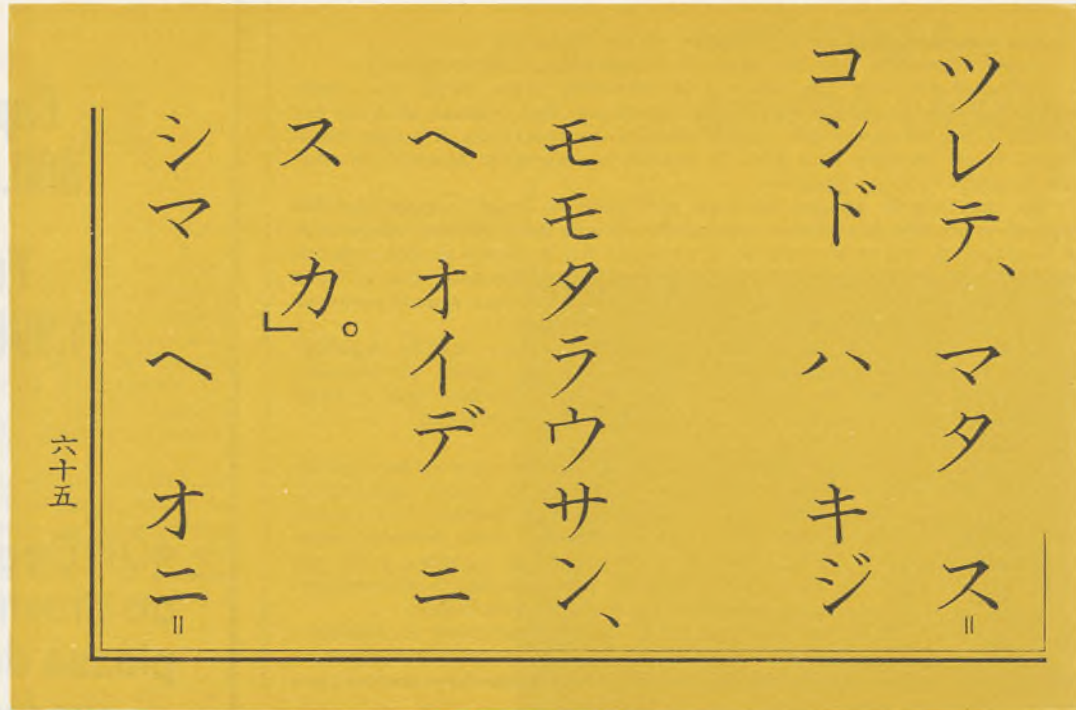 ツレテ、 マタ ス＝
コンド ハ キジ
モモタラウサン、
ヘ オイデ ニ
ス カ。」
シマ ヘ オニ＝
六十五